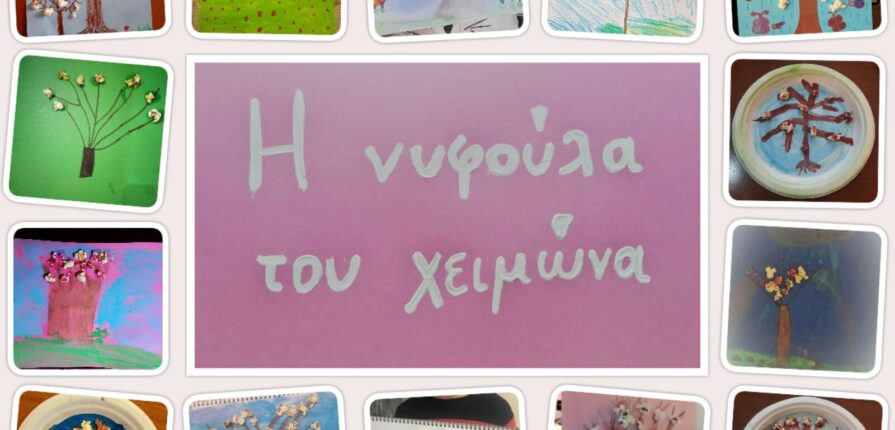 Η νυφούλα
του χειμώνα